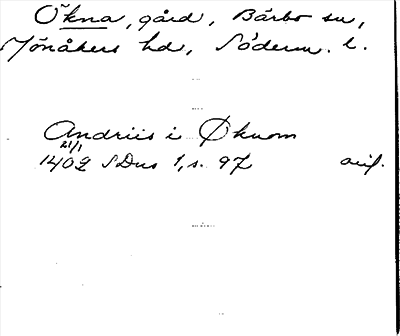 Ökna, gård, Bärbo sn,
Jönåkers hd, Söderm. l.
Andriis i Øknom
21/1
1402 SDns 1, s. 97 avf.